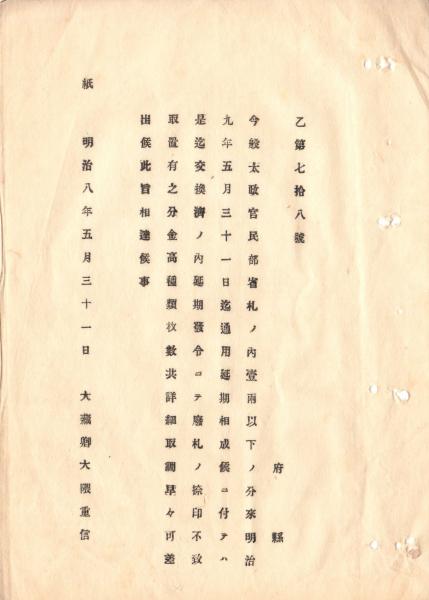 乙第七拾八號
府縣
今般太政官民部省札ノ內壹兩以下ノ分來明治
九年五月三十一日迄通用延期相成候ニ付テハ
是迄交換濟ノ內延期發令ニテ廢札ノ捺印不致
取置有之分金高種類枚數共詳細取調早々可差
出候此旨相達候事
明治八年五月三十一日 大藏卿大隈重信
紙